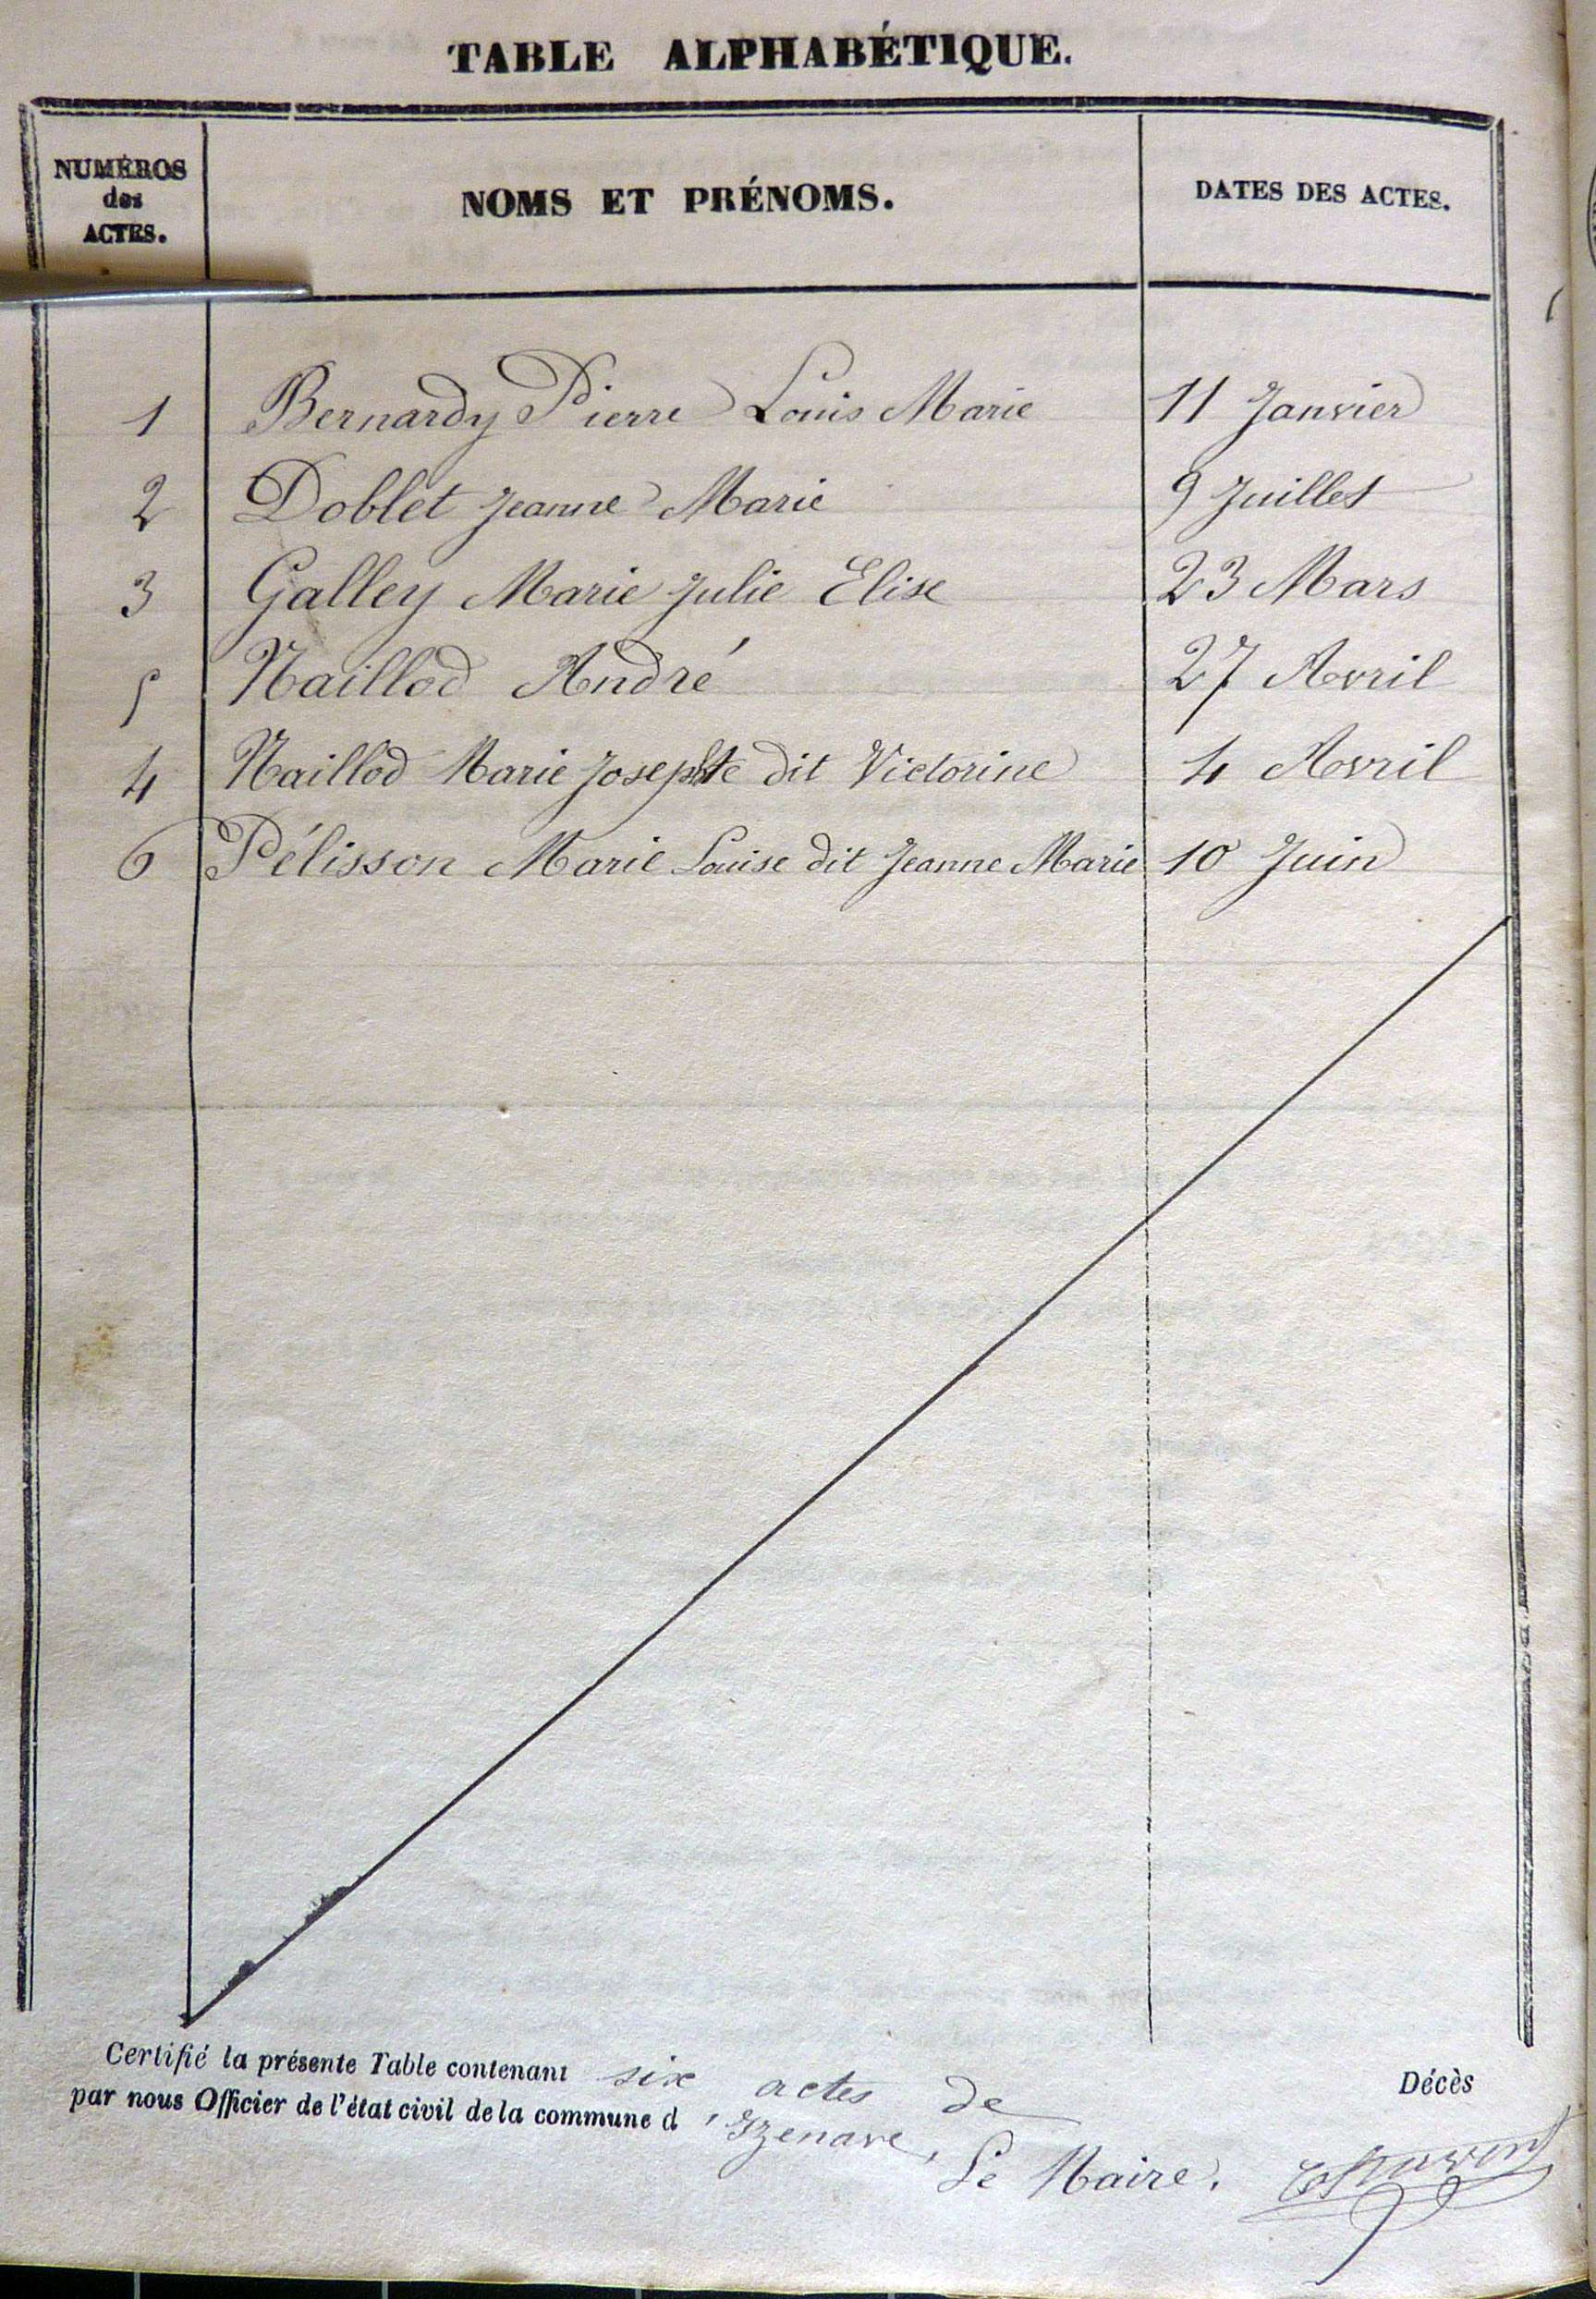 TABLE ALPHABÉTIQUE.
NUMÉROS des ACTES.
NOMS ET PRÉNOMS.
DATES DES ACTES.
1 Bernardy Pierre Louis Marie 11 Janvier
2 Doblet Jeanne Marie 9 Juillet
3 Galley Marie Julie Elise 23 Mars
5 Maillod André 27 Avril
4 Maillod Marie Josephte dit Victorine 4 Avril
6 Pélisson Marie Louise dit Jeanne Marie 10 Juin
Certifié la présente Table contenant six actes de Décès
par nous Officier de l'état civil de la commune d'Izenave,
Le Maire.